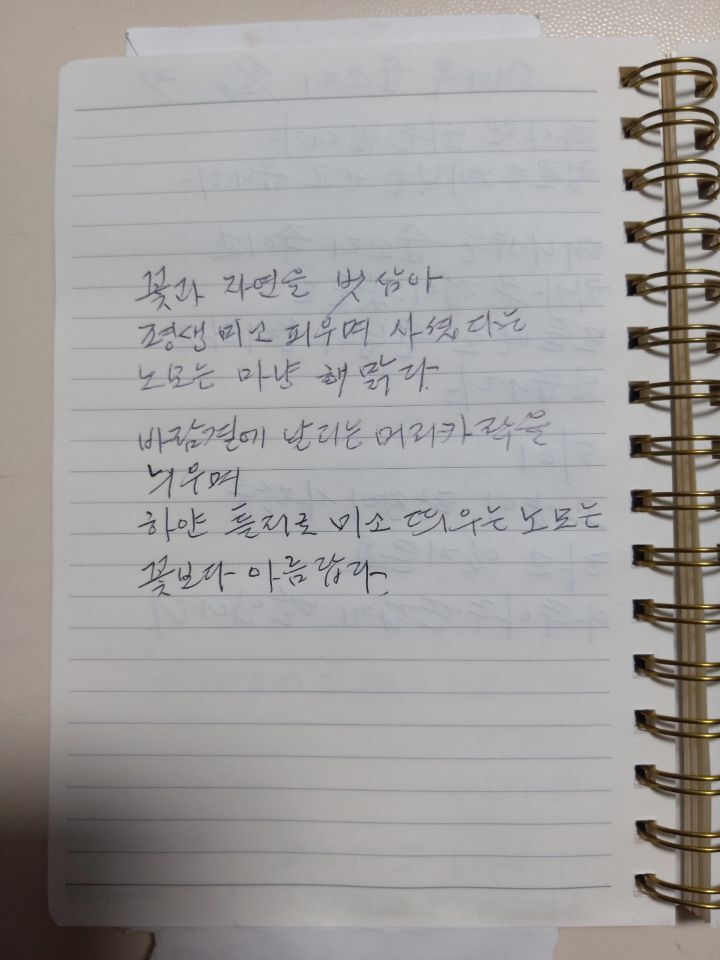 꽃과 자연을 벗삼아
평생 미소 피우며 사셨다는
노모는 마냥 해맑다.
바람결에 날리는 머리카락을
뉘우며
하얀 틀니로 미소 띄우는 노모는
꽃보다 아름답다.